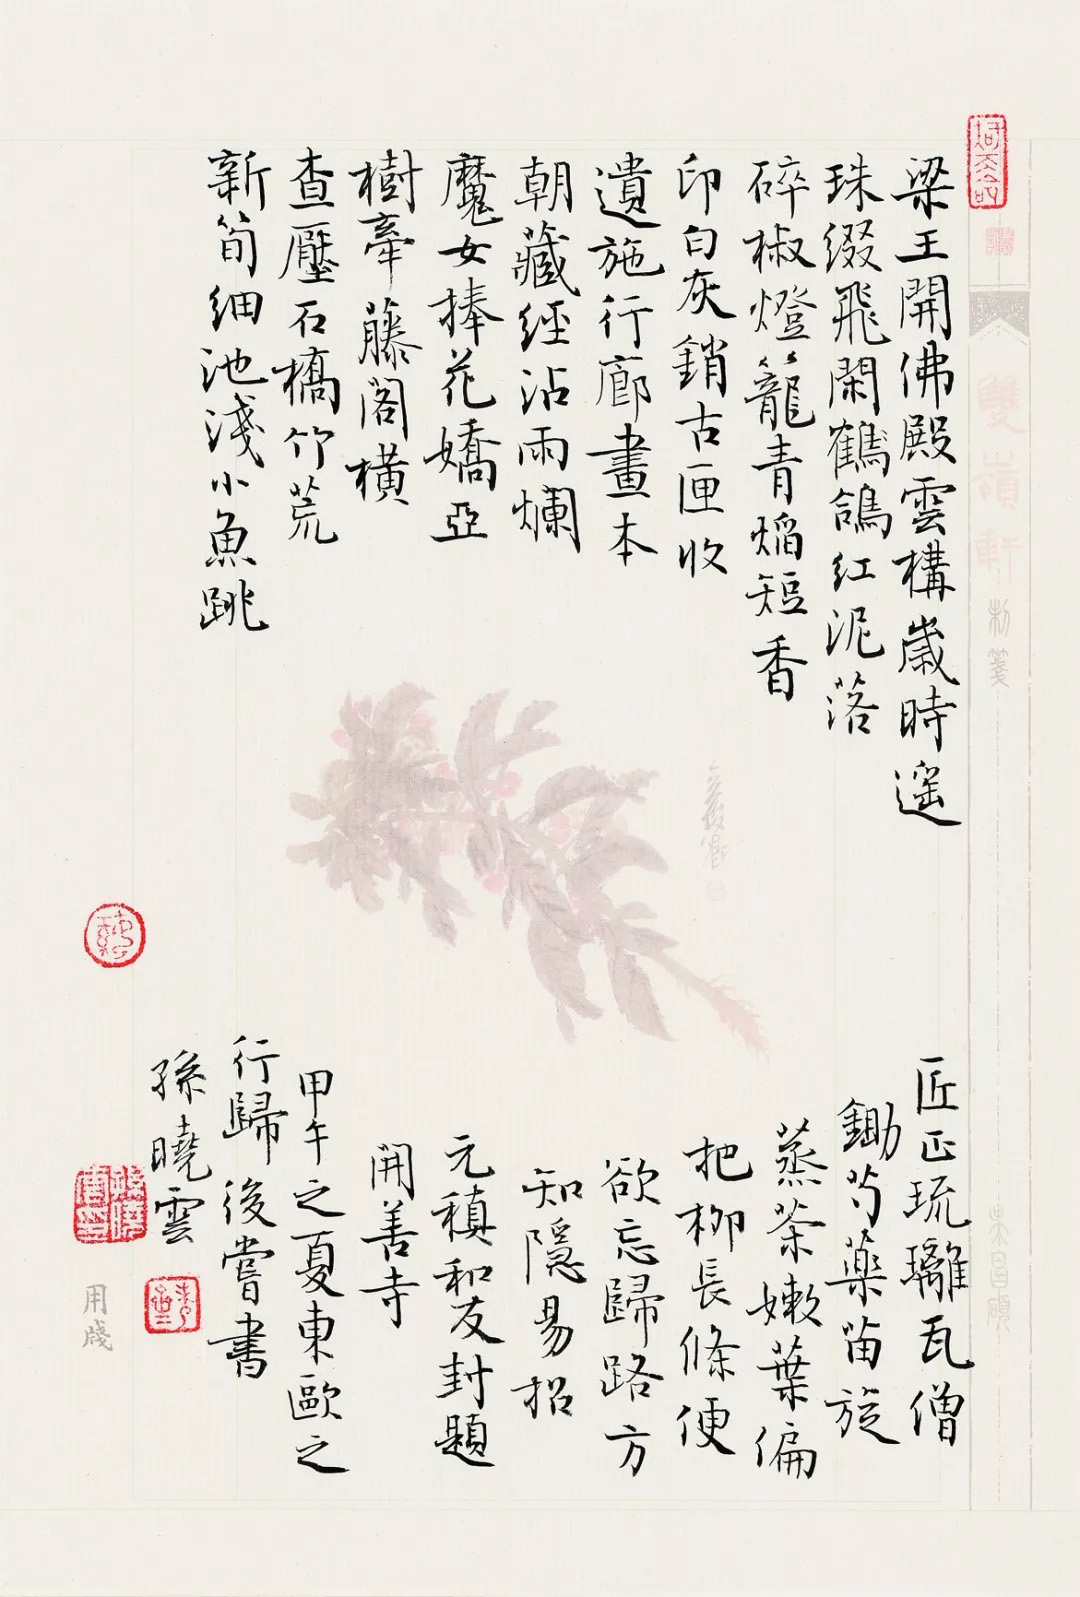 梁王開佛殿雲構歲時遥
珠綴飛閑鶴鴿紅泥落
碎椒燈籠青焰短香
印白灰銷古匣收
遺施行廊畫本
朝藏經沾雨爛
魔女捧花嬌亞
樹牽藤閣橫
查壓石橋竹荒
新筍細池淺小魚跳
匠正琉璃瓦僧
鋤芍藥苗旋
蒸茶嫩葉偏
把柳長條便
欲忘歸路方
知隱易招
元稹和友封題
開善寺
甲午之夏東歐之
行歸後嘗書
孫曉雲
雙嶺軒
制箋
用牋